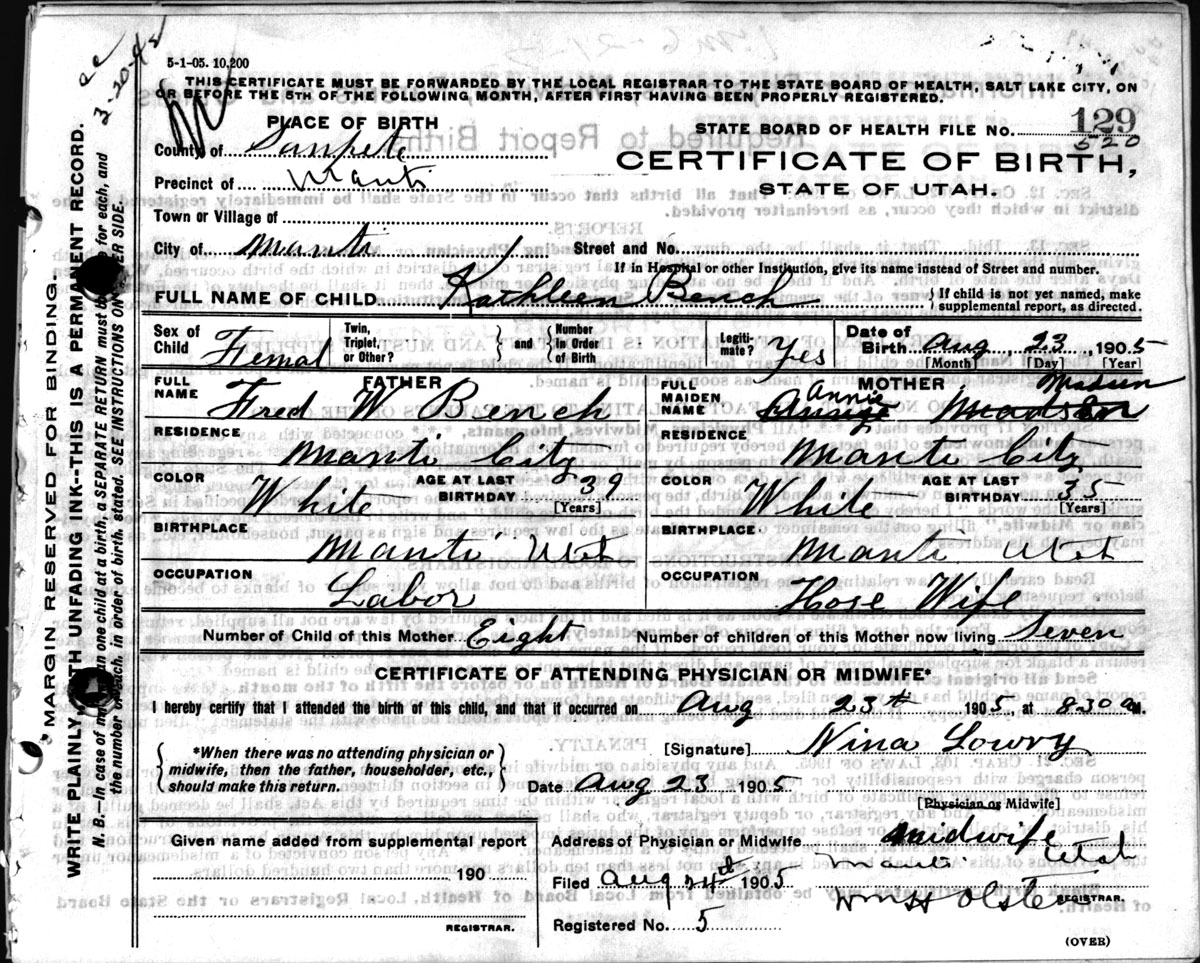 5-1-05. 10,200
THIS CERTIFICATE MUST BE FORWARDED BY THE LOCAL REGISTRAR TO THE STATE BOARD OF HEALTH, SALT LAKE CITY, ON
OR BEFORE THE 5TH OF THE FOLLOWING MONTH, AFTER FIRST HAVING BEEN PROPERLY REGISTERED.
PLACE OF BIRTH
STATE BOARD OF HEALTH FILE No. 129
520
County of Sanpete
CERTIFICATE OF BIRTH,
Precinct of Manti
STATE OF UTAH.
Town or Village of
City of Manti Street and No.
If in Hospital or other Institution, give its name instead of Street and number.
FULL NAME OF CHILD Kathleen Bench { If child is not yet named, make supplemental report, as directed.
Sex of Child Femal Twin, Triplet, or Other? } and { Number In Order of Birth Legiti-mate? Yes Date of Birth Aug 23, 1905
[Month] [Day] [Year]
FATHER
FULL NAME Fred W Bench
RESIDENCE
Manti City
COLOR White AGE AT LAST BIRTHDAY 39 [Years]
BIRTHPLACE
Manti Ut
OCCUPATION
Labor
MOTHER
FULL MAIDEN NAME Annie Madsen
RESIDENCE
Manti City
COLOR White AGE AT LAST BIRTHDAY 35 [Years]
BIRTHPLACE
Manti Utt
OCCUPATION
Hose Wife
Number of Child of this Mother Eight Number of children of this Mother now living Seven
CERTIFICATE OF ATTENDING PHYSICIAN OR MIDWIFE*
I hereby certify that I attended the birth of this child, and that it occurred on Aug 23th 1905, at 830 a M.
{ *When there was no attending physician or
midwife, then the father, householder, etc.,
should make this return. }
[Signature] Nina Lowry
Date Aug 23 1905
[Physician or Midwife]
Given name added from supplemental report
190
REGISTRAR.
Address of Physician or Midwife midwife
Manti Utah
Filed Aug 24th 1905 Wm H Olsten
REGISTRAR.
Registered No. 5
(OVER)
MARGIN RESERVED FOR BINDING.
WRITE PLAINLY WITH UNFADING INK--THIS IS A PERMANENT RECORD.
N. B.--In case of more than one child at a birth, a SEPARATE RETURN must be for each, and
the number of each, in order of birth, stated. SEE INSTRUCTIONS ON OTHER SIDE.